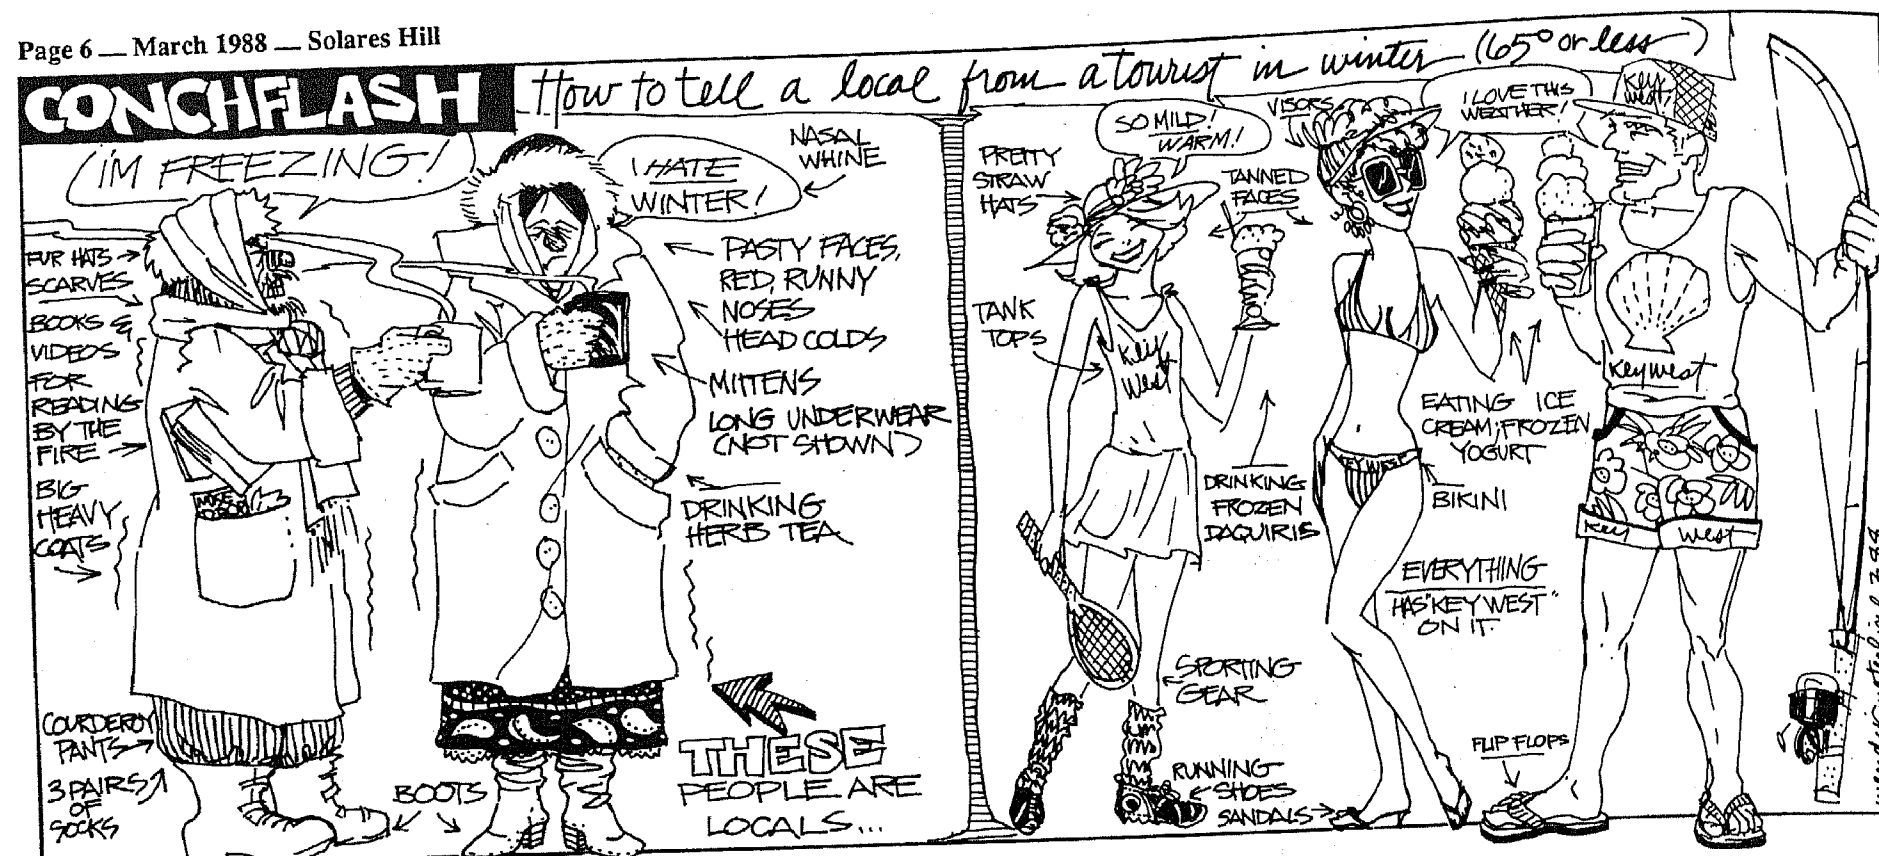 Page 6 — March 1988 — Solares Hill
CONCHFLASH
How to tell a local from a tourist in winter (65° or less)
I'M FREEZING!
I HATE
WINTER!
NASAL
WHINE
FUR HATS
SCARVES
BOOKS &
VIDEOS
FOR
READING
BY THE
FIRE
BIG
HEAVY
COATS
COURDEROY
PANTS
3 PAIRS
OF
SOCKS
BOOTS
PASTY FACES,
RED, RUNNY
NOSES
HEAD COLDS
MITTENS
LONG UNDERWEAR
(NOT SHOWN)
DRINKING
HERB TEA
THESE
PEOPLE ARE
LOCALS...
SO MILD!
WARM!
VISORS
I LOVE THIS
WEATHER!
Key
West
PRETTY
STRAW
HATS
TANNED
FACES
TANK
TOPS
Key
West
Key West
EATING ICE
CREAM, FROZEN
YOGURT
DRINKING
FROZEN
DAQUIRIS
KEY WEST
BIKINI
EVERYTHING
HAS "KEY WEST"
ON IT.
Key West
SPORTING
GEAR
RUNNING
SHOES
SANDALS
FLIP FLOPS